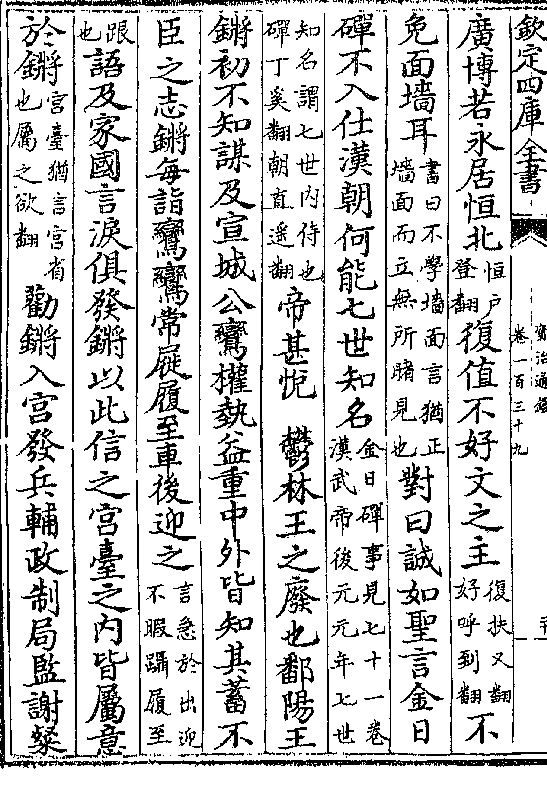 欽定四庫全書
資治通鑑
卷一百三十九
廣博若永居恒北恒户登翻復值不好文之主復扶又翻好呼到翻不
免面墻耳書曰不學墻面言猶正墻面而立無所睹見也對曰誠如聖言金日
磾不入仕漢朝何能七世知名金日磾事見七十一卷漢武帝後元元年七世
知名謂七世内侍也磾丁奚翻朝直遥翻帝甚悦 鬱林王之廢也鄱陽王
鏘初不知謀及宣城公鸞權埶益重中外皆知其蓄不
臣之志鏘每詣鸞鸞常屣履至車後迎之言急於出迎不暇躡履至
跟也語及家國言淚俱發鏘以此信之宮臺之内皆屬意
於鏘宮臺猶言宮省也屬之欲翻勸鏘入宮發兵輔政制局監謝粲